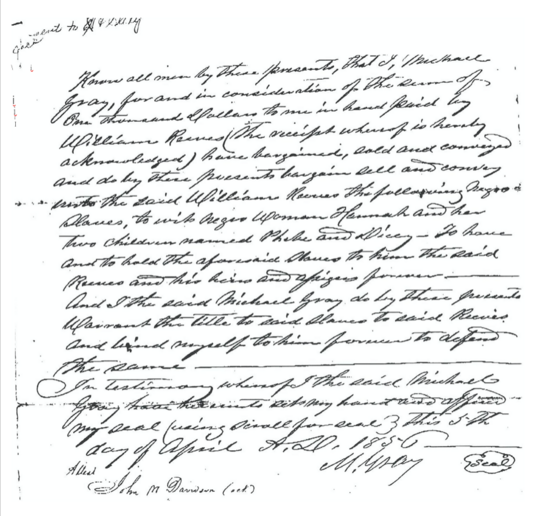 sent to
Know all men by these presents, that I, Michael
Gray, for and in consideration of the sum of
One thousand Dollars to me in hand paid by
William Reeves (the receipt whereof is hereby
acknowledged) have bargained, sold and conveyed
and do by these presents bargain sell and convey
unto the said William Reeves the following Negro
Slaves, to wit Negro Woman Hannah and her
two children named Phebe and Dicey – To have
and to hold the aforesaid Slaves to him the said
Reeves and his heirs and assigns forever
And I the said Michael Gray do by these presents
Warrant the title to said Slaves to said Reeves
and bind myself to him forever to defend
the same
In testimony whereof I the said Michael
Gray have hereunto set my hand and affixed
my seal (using scroll for seal) this 5th
day of April A.D. 1856
M. Gray Seal
Attest
John N Davidson